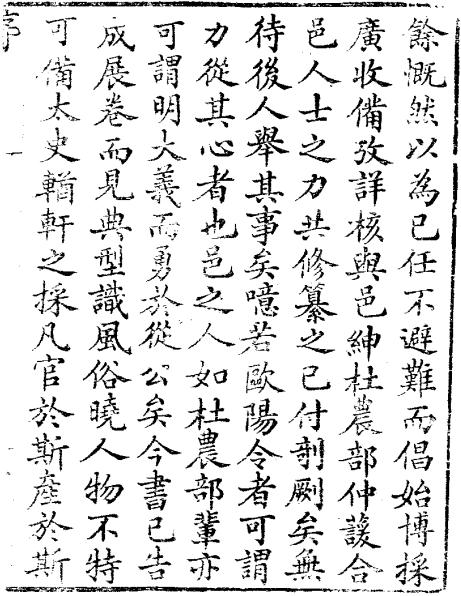 餘慨然以為己任不避難而倡始博採
廣收備攷詳核與邑紳杜農部仲諼合
邑人士之力共修纂之已付剞劂矣無
待後人舉其事矣噫若歐陽令者可謂
力從其心者也邑之人如杜農部輩亦
可謂明大義而勇於從公矣今書已告
成展卷而見典型識風俗曉人物不特
可備太史輶軒之採凡官於斯產於斯
序